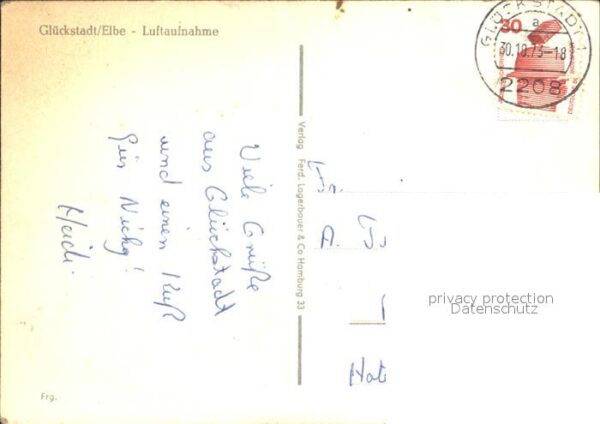 Glückstadt/Elbe - Luftaufnahme
GLÜCKSTADT 1
30
a
30.10.73-18
2208
Viele Grüße
aus Glückstadt
und einen Kuß
für
Heidi
Verlag Ferd. Lagerbauer & Co Hamburg 33
A.
privacy protection
Datenschutz
Frg.